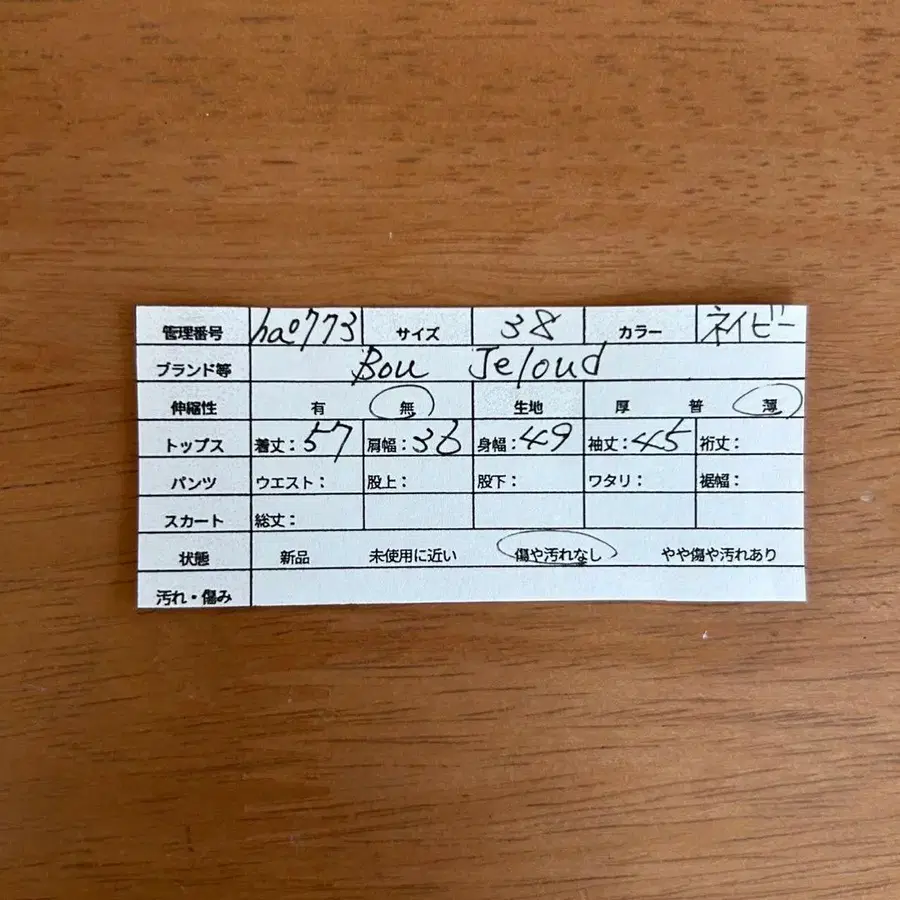 管理番号 ha0773 サイズ 38 カラー ネイビー
ブランド等 Bou Jeloud
伸縮性 有 無 生地 厚 普 薄
トップス 着丈：57 肩幅：36 身幅：49 袖丈：45 裄丈：
パンツ ウエスト： 股上： 股下： ワタリ： 裾幅：
スカート 総丈：
状態 新品 未使用に近い 傷や汚れなし やや傷や汚れあり
汚れ・傷み